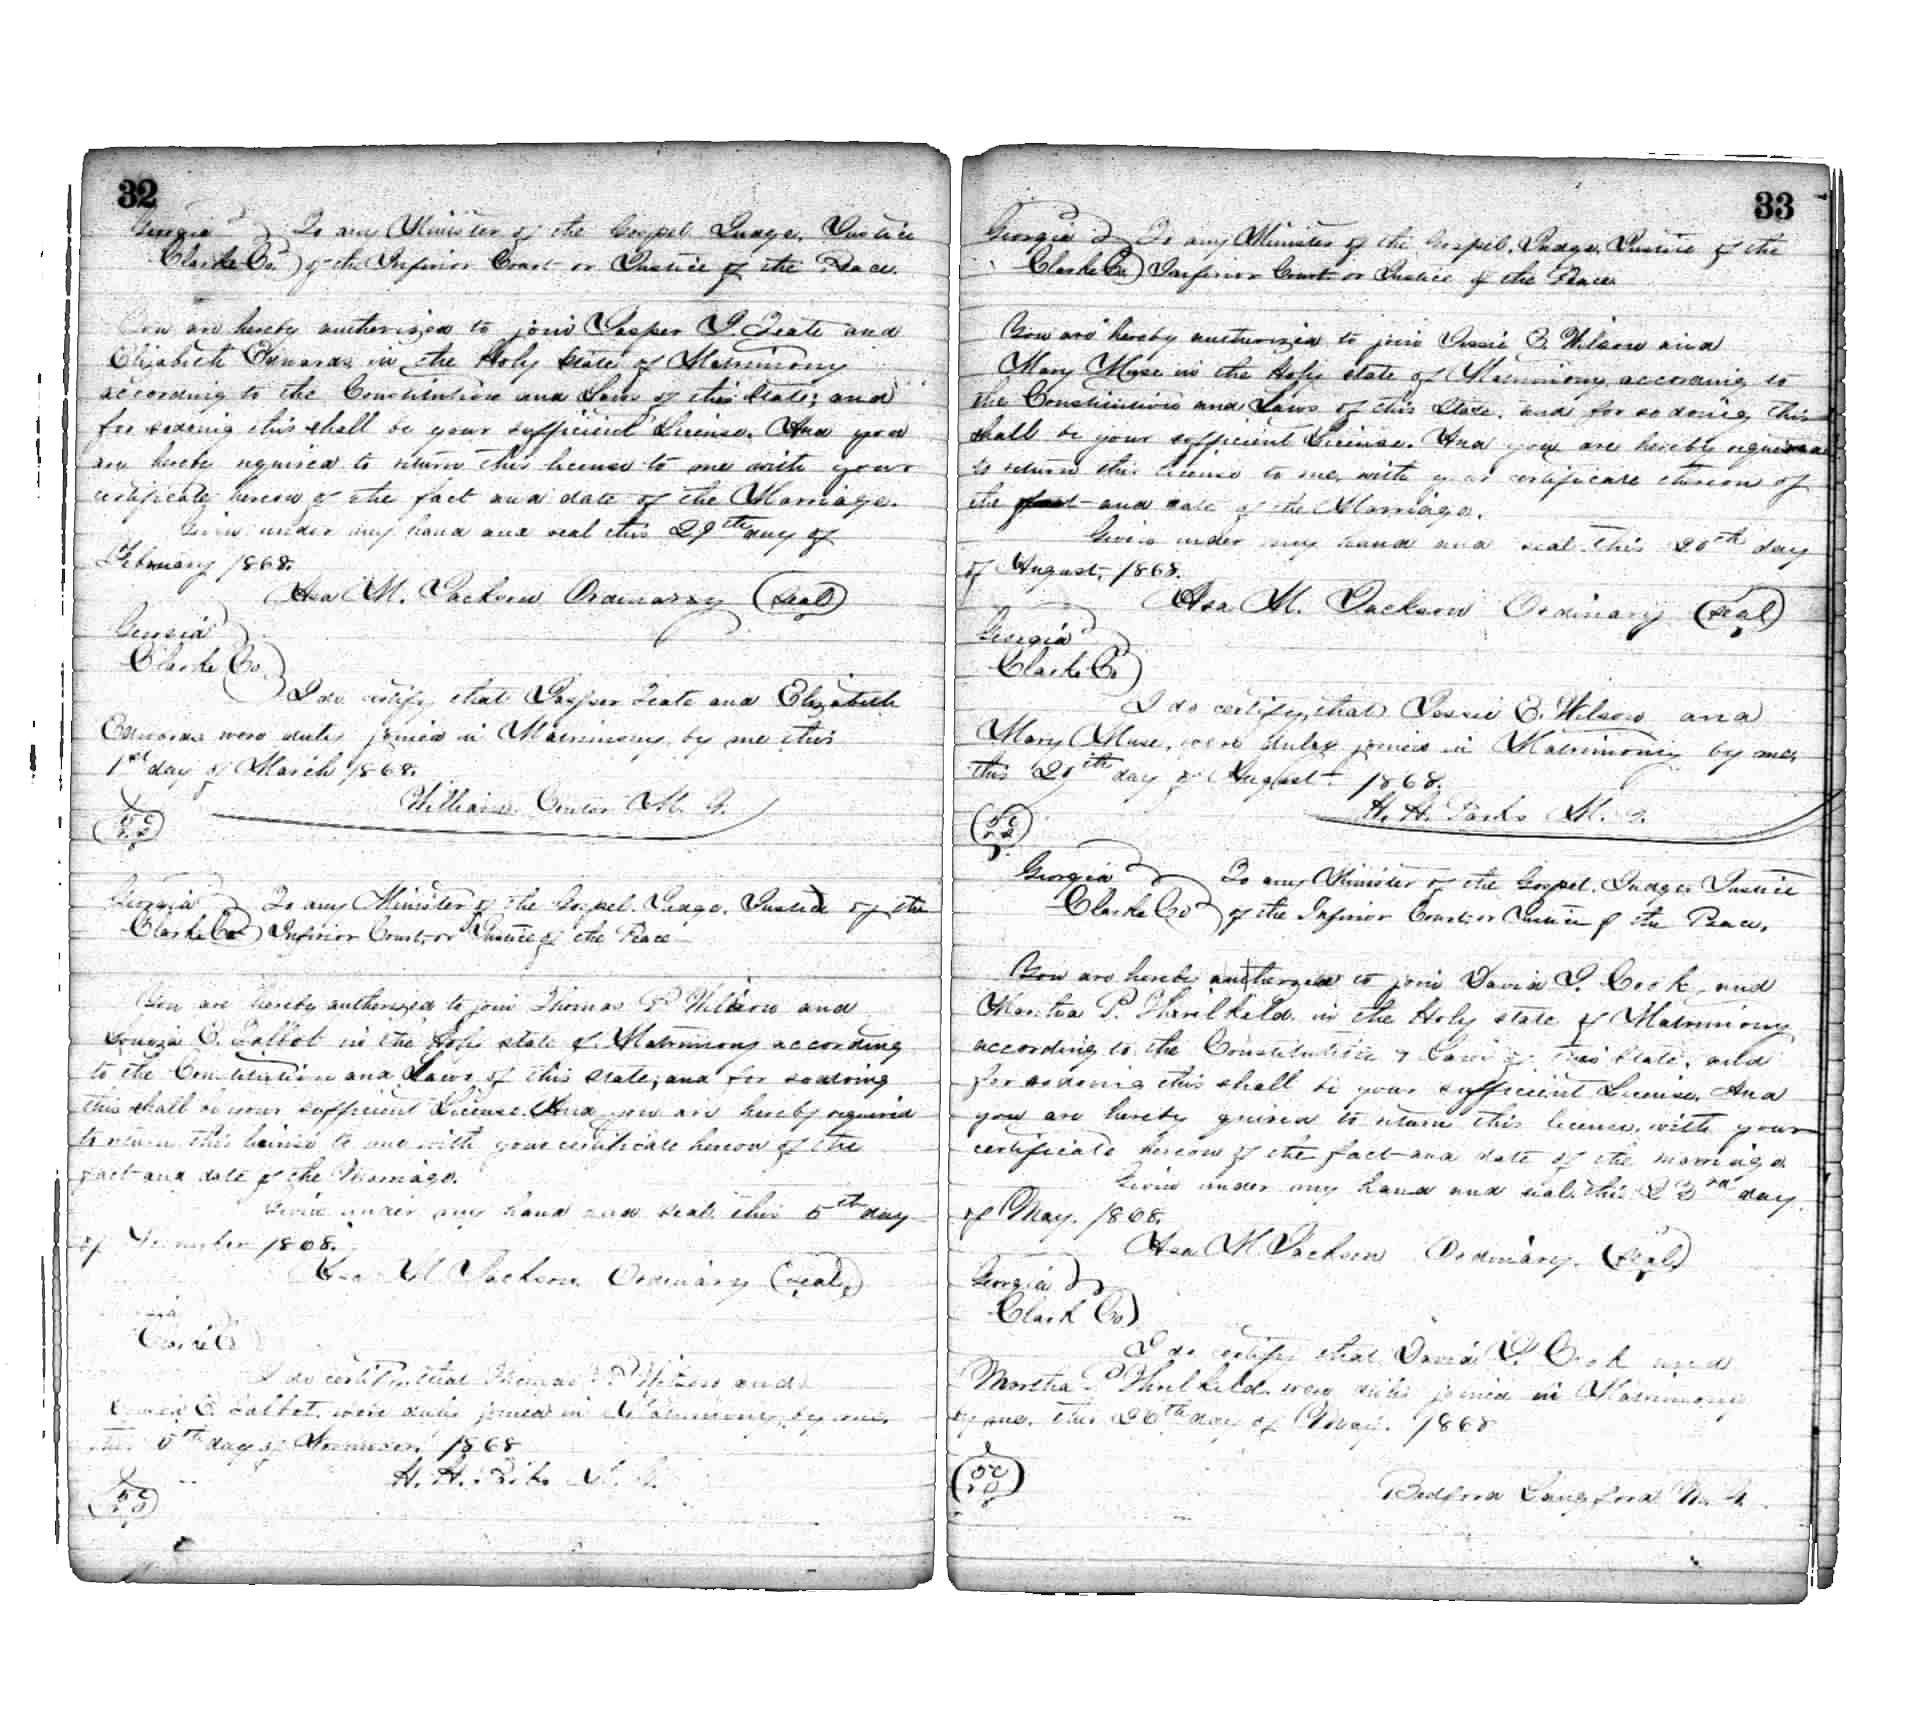 32
Georgia To any Minister of the Gospel, Judge, Justice
Clarke Co. of the Inferior Court or Justice of the Peace.
You are hereby authorized to join Jasper J. Teate and
Elizabeth Edwards in the Holy State of Matrimony
according to the Constitution and Laws of this State; and
for so doing this shall be your sufficient License. And you
are hereby required to return this license to me with your
certificate hereon of the fact and date of the Marriage.
Given under my hand and seal this 29th day of
February 1868.
Asa M. Jackson Ordinary (Seal)
Georgia
Clarke Co.
I do certify that Jasper Teate and Elizabeth
Edwards were duly joined in Matrimony by me this
1st day of March 1868.
William M. G.
Georgia To any Minister of the Gospel, Judge, Justice of the
Clarke Co. Inferior Court, or Justice of the Peace
You are hereby authorized to join Thomas P. Wilson and
C. Talbot in the Holy state of Matrimony according
to the Constitution and Laws of this State; and for so doing
this shall be your sufficient License. And you are hereby required
to return this license to me with your certificate hereon of the
fact and date of the Marriage.
Given under my hand and seal this 5th day
of 1868.
Asa M Jackson Ordinary (seal)
Clarke Co
I do certify that Thomas P. Wilson and
C. Talbot, were duly joined in Matrimony, by me,
this 5th day of 1868
H. H. M. G.
33
Georgia To any Minister of the Gospel, Judge, Justice of the
Clarke Co Inferior Court or Justice of the Peace
You are hereby authorized to join Jessie B. Wilson and
Mary Muse in the Holy state of Matrimony according to
the Constitution and Laws of this State, and for so doing this
shall be your sufficient License. And you are hereby required
to return this license to me, with your certificate thereon of
the fact and date of the Marriage.
Given under my hand and seal this 20th day
of August, 1868.
Asa M. Jackson Ordinary (seal)
Georgia
Clarke Co
I do certify, that Jessie B. Wilson and
Mary Muse, were duly joined in Matrimony by me,
this 20th day of August 1868.
H. H. Parks M. G.
Georgia To any Minister of the Gospel, Judge Justice
Clarke Co of the Inferior Court, or Justice of the Peace,
You are hereby authorized to join David J. Cook, and
Martha P. Threlkeld in the Holy state of Matrimony
according to the Constitution & Laws of this State, and
for so doing this shall be your sufficient License, And
you are hereby quired to return this license, with your
certificate hereon of the fact and date of the marriage
Given under my hand and seal this 23rd day
of May. 1868.
Asa M Jackson Ordinary. (seal)
Georgia
Clark Co
I do certify that David J. Cook and
Martha P Threlkeld were duly joined in Matrimony
by me, this 26th day of May. 1868
Bedford Langford M. G.